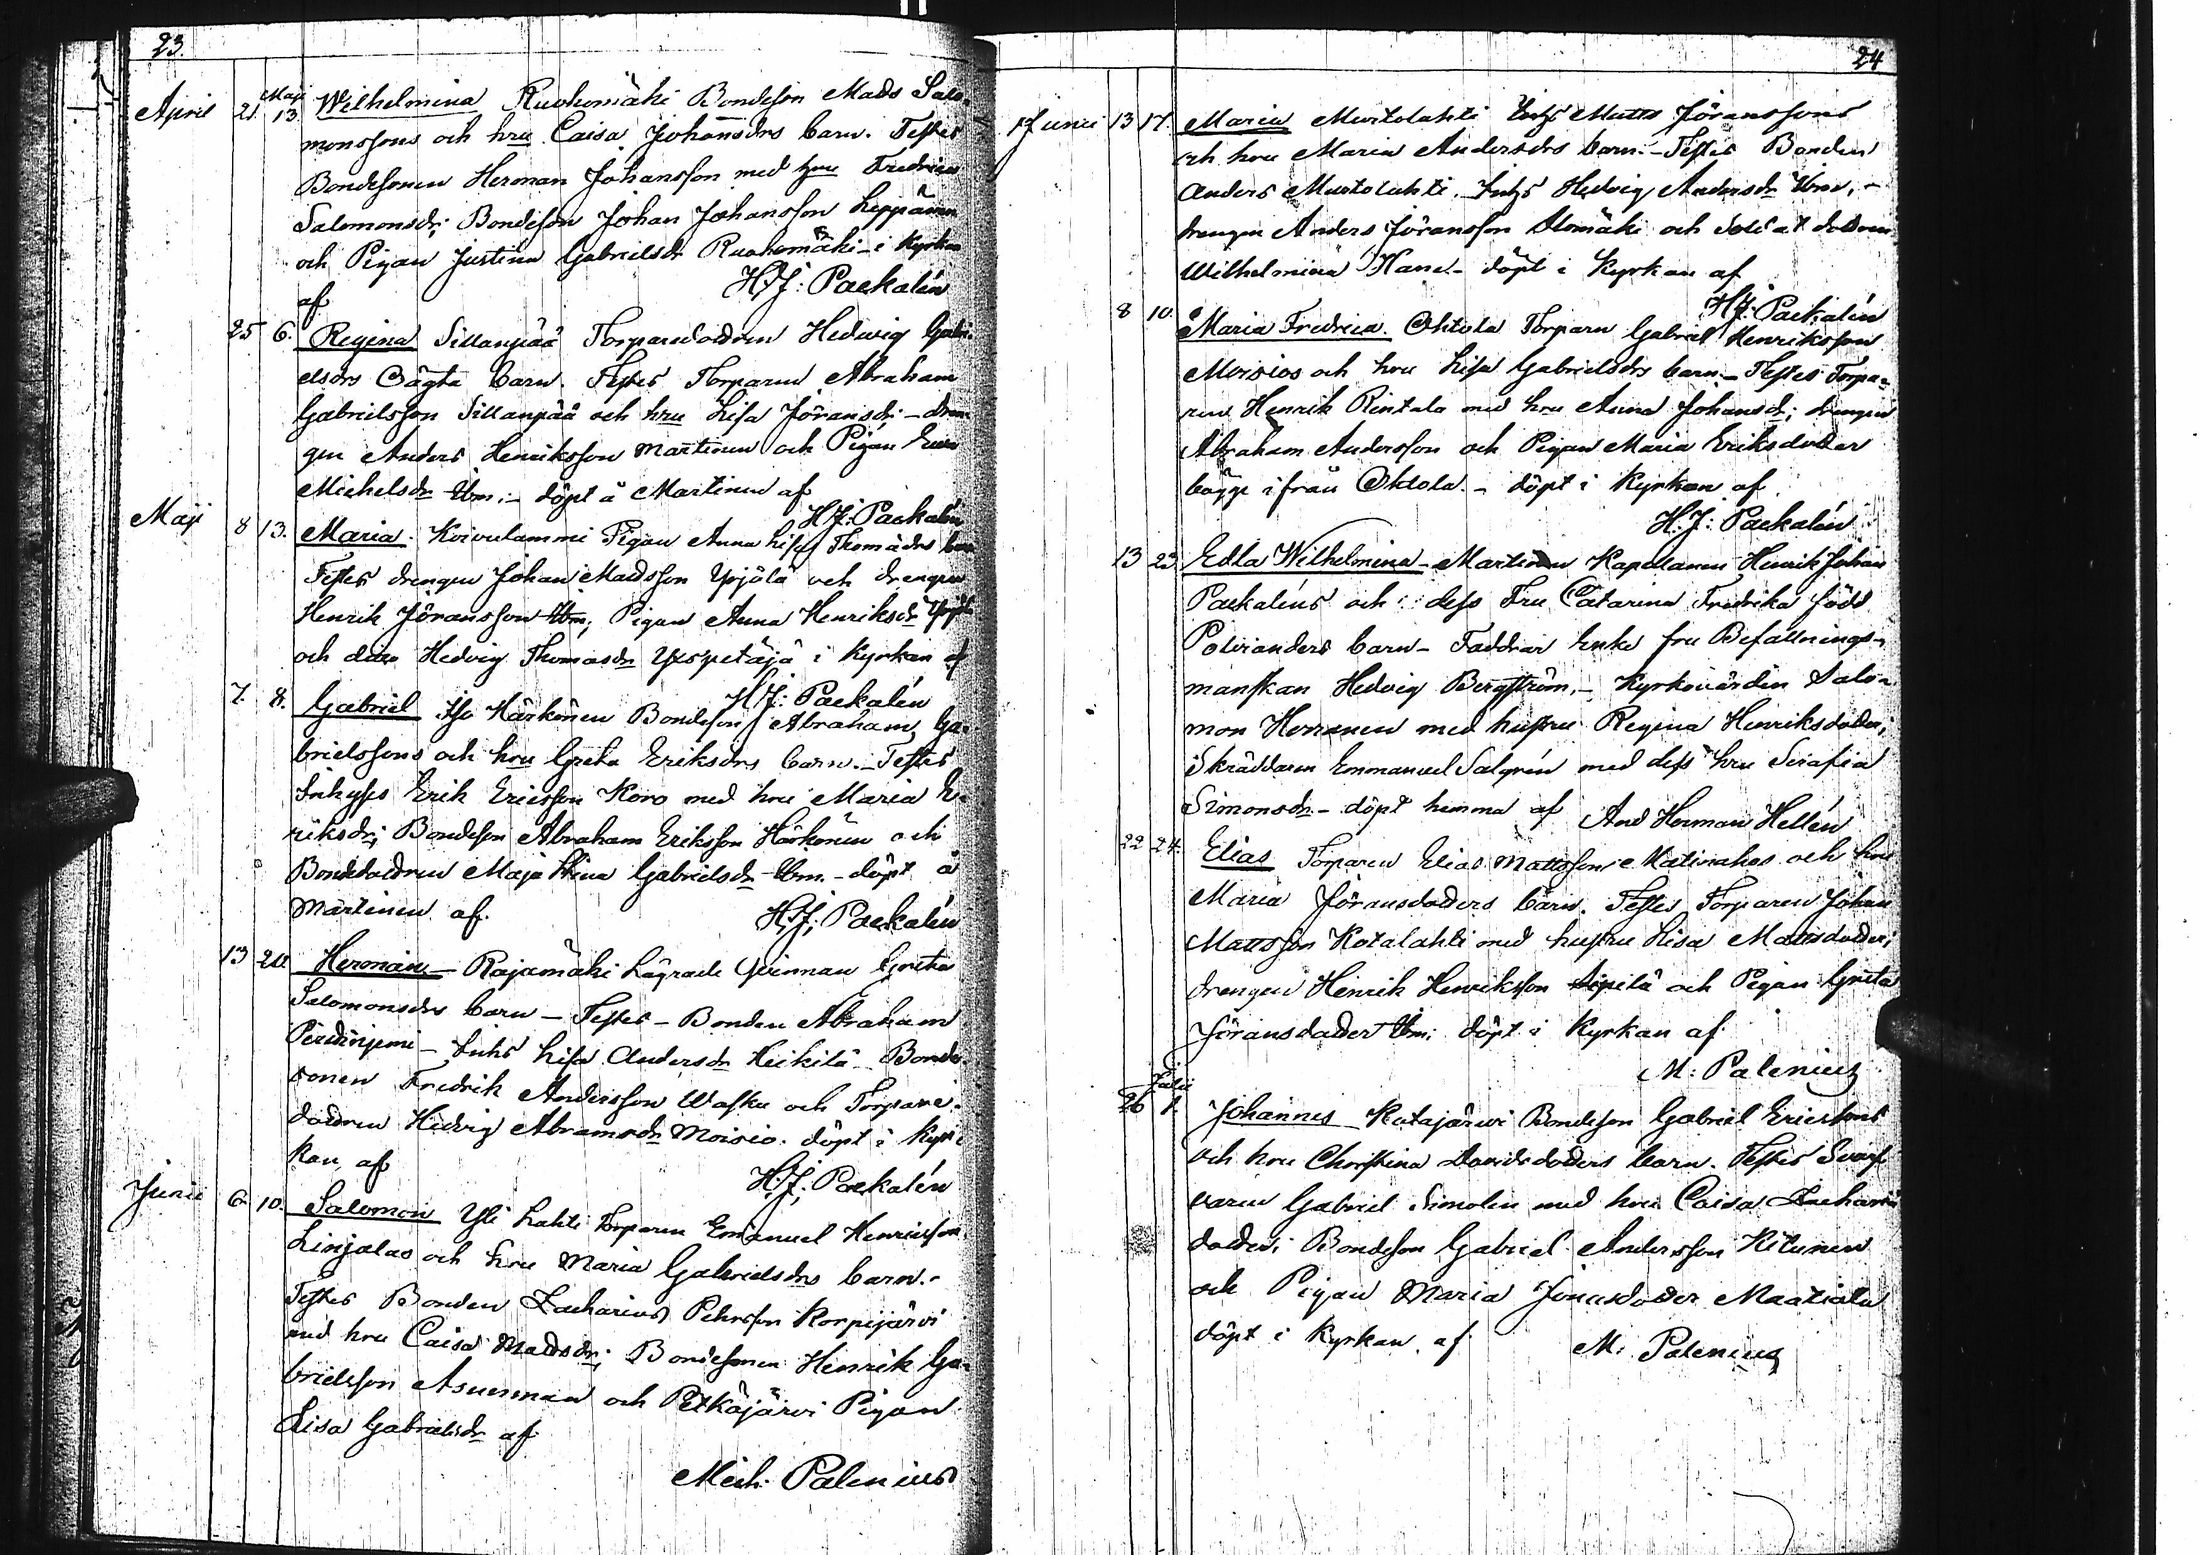 23.
April 21 Maji 13. Wilhelmina Ruohomäki Bondeson Mads Salo-
monssons och hru Caisa Johansdrs barn. Testes
Bondesonen Herman Johansson med hru Fredrica
Salomonsdr; Bondeson Johan Johansson Leppänen
och Pigan Justina Gabrielsdr Ruohomäki i Kyrkan
af H:J: Paekalén
25 6. Regina Sillanpää Torparedottren Hedwig Gabri-
elsdrs Oägta barn. Testes Torparen Abraham
Gabrielsson Sillanpää och hru Lisa Jöransdr; – dren-
gen Anders Henriksson Martinen och Pigan Ewa
Michelsdr Ibm; – döpt å Martinen af
H:J: Paekalén
Maji 8 13. Maria. Koivulammi Pigan Anna Lisa Thomædrs barn
Testes drengen Johan Madsson Yrjölä och drengen
Henrik Jöransson Ibm; Pigan Anna Henriksdr Yrjölä
och Hedvig Thomasdr i Kyrkan af
H:J: Paekalén
7. 8. Gabriel Iso Härkönen Bondeson Abraham Ga-
brielssons och hru Greta Eriksdrs barn. – Testes
Inhyses Erik Ericsson Koro med hru Maria E-
riksdr; Bondeson Abraham Eriksson Härkönen och
Bondedottren Maja Stina Gabrielsdr Ibm. – döpt å
Martinen af. H:J: Paekalén
13 20. Herman – Rajamäki Lägrade Qvinnan Greta
Salomonsdrs barn – Testes – Bonden Abraham
– Inhs Lisa Andersdr Heikilä – Bonde-
sonen Fredrik Andersson Wasku och Torpare-
dottren Hedvig Abramsdr Moisio. döpt i Kyr-
kan af H:J: Paekalén
Junii 6. 10. Salomon Yli Lahti Torparen Emanuel Henricsson
Linjalas och hru Maria Gabrielsdrs barn. –
Testes Bonden Zacharias Pehrsson Korpijärvi
med hru Caisa Madsdr; Bondesonen Henrik Ga-
brielsson Asunmaa och Petkäjärvi Pigan
Lisa Gabrielsdr af
Mich: Palenius
24
Junii 13 17. Maria Murtolahti Inhs Matts Jöranssons
och hru Maria Andersdrs barn. – Testes Bonden
Anders Murtolahti. Inhs Hedvig Andersdr Ibm, –
drengen Anders Jöransson Alomäki och Soldat dottren
Wilhelmina Hane. – döpt i Kyrkan af
H:J: Paekalén
8 10. Maria Fredrica. Ohtola Torparn Gabriel Henriksson
Moisios och hru Lisa Gabrielsdrs barn. – Testes Torpa-
ren Henrik Rintala med hru Anna Johansdr; drengen
Abraham Andersson och Pigan Maria Eriksdotter
bägge ifrån Ohtola. – döpt i Kyrkan af.
H:J: Paekalén
13 23. Edla Wilhelmina – Martinen Kapellanen Henrik Johan
Paekaléns och dess Fru Catarina Fredrika född
Polvianders barn – Faddrar Enke fru Befallnings-
manskan Hedvig Bergström, – Kyrkovärden Salo-
mon Herranen med hustru Regina Henriksdotter;
Skräddaren Emmanuel Salgrén med dess hru Serafia
Simonsdr – döpt hemma af And Herman Hellén
22 24. Elias Torparen Elias Mattsson Matinahos och hru
Maria Jöransdotters barn. Testes Torparen Johan
Mattsson Kotalahti med hustru Lisa Mattsdotter;
drengen Henrik Henriksson Sipilä och Pigan Greta
Jöransdotter Ibm; döpt i Kyrkan af
M: Palenius
26 Julii 1. Johannes – Katajärwi Bondeson Gabriel Ericsons
och hru Christina Davidsdotters barn. Testes Svarf-
varen Gabriel Simolin med hru Caisa Zacharie
dotter; Bondeson Gabriel Andersson Kitunen
och Pigan Maria Jonasdotter Maatiala
döpt i Kyrkan af M: Palenius